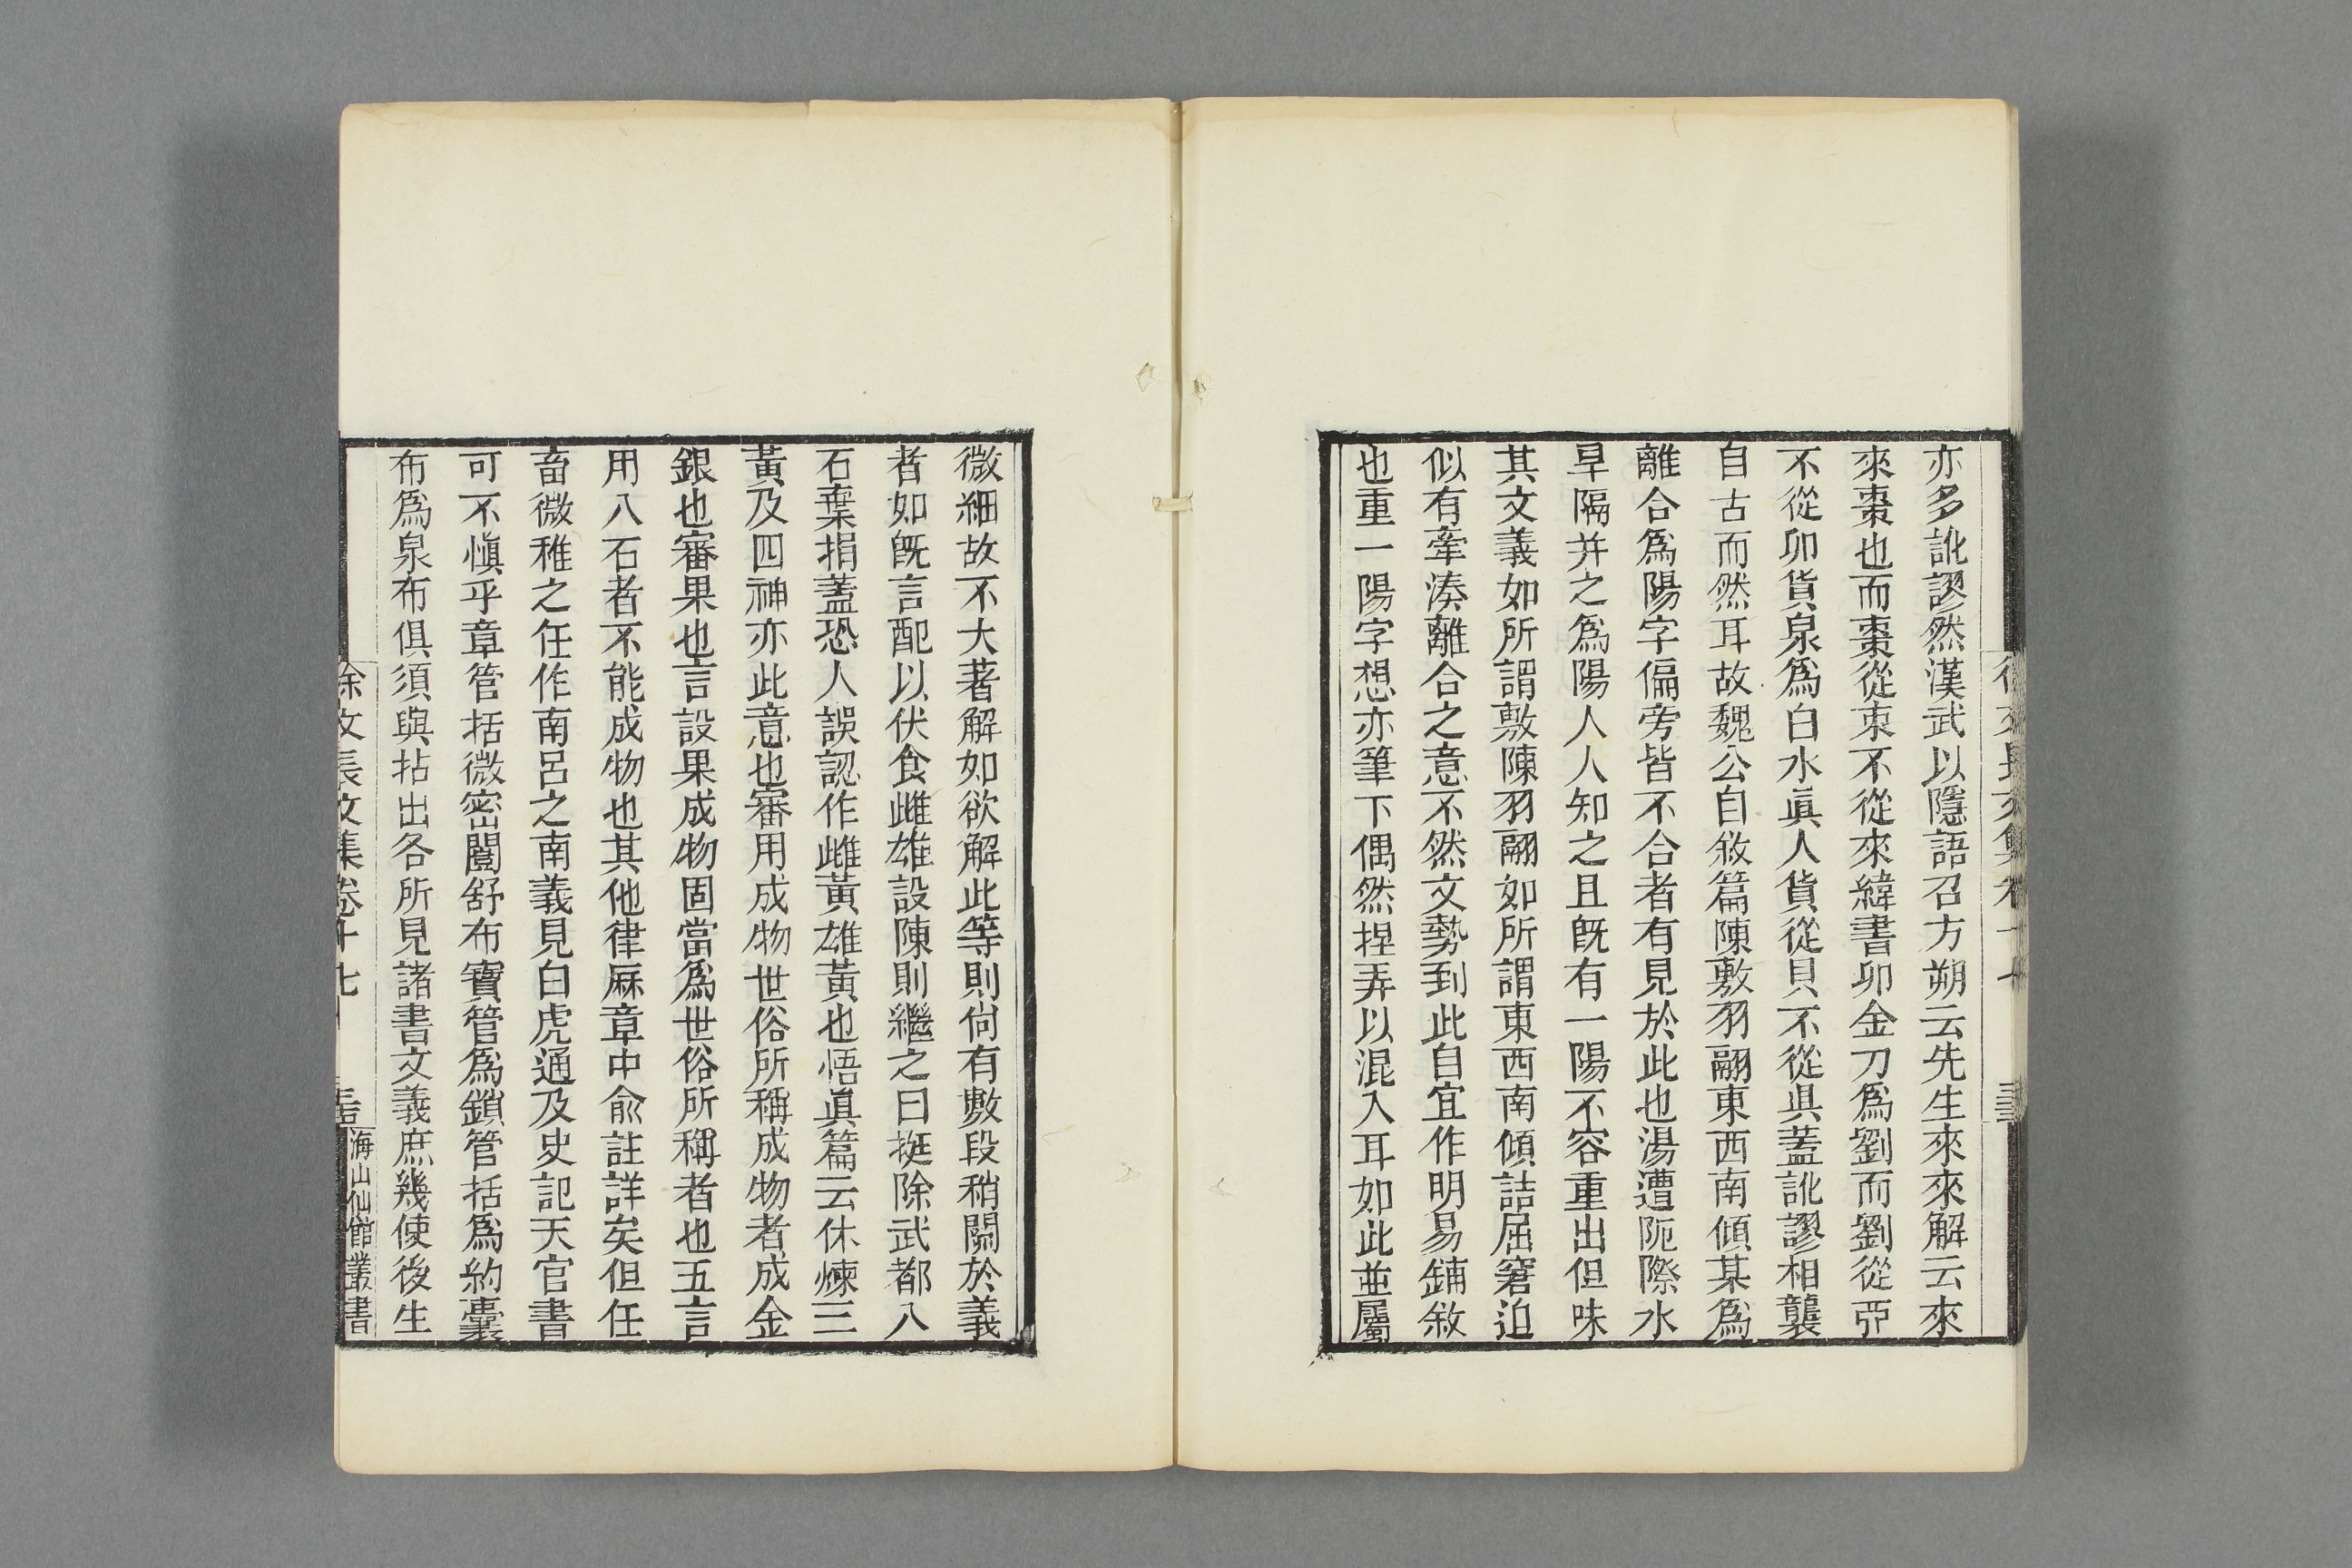 亦多訛謬然漢武以隱語召方朔云先生來來解云來
來棗也而棗從朿不從來緯書卯金刀爲劉而劉從丣
不從卯貨泉爲白水眞人貨從貝不從具蓋訛謬相襲
自古而然耳故魏公自敘篇陳敷羽翮東西南傾某爲
離合爲陽字偏旁皆不合者有見於此也湯遭阨際水
旱隔并之爲陽人人知之且旣有一陽不容重出但味
其文義如所謂敷陳羽翮如所謂東西南傾詰屈窘迫
似有牽湊離合之意不然文勢到此自宜作明易鋪敘
也重一陽字想亦筆下偶然揑弄以混入耳如此並屬
微細故不大著解如欲解此等則尙有數段稍關於義
者如旣言配以伏食雌雄設陳則繼之曰挻除武都八
石棄捐蓋恐人誤認作雌黃雄黃也悟眞篇云休煉三
黃及四神亦此意也審用成物世俗所稱成物者成金
銀也審果也言設果成物固當爲世俗所稱者也五言
用八石者不能成物也其他律厤章中俞註詳矣但任
畜微稚之任作南呂之南義見白虎通及史記天官書
可不愼乎章管括微密闓舒布寶管爲鎖管括爲約囊
布爲泉布俱須與拈出各所見諸書文義庶幾使後生
徐文長文集卷十七
海山仙館叢書